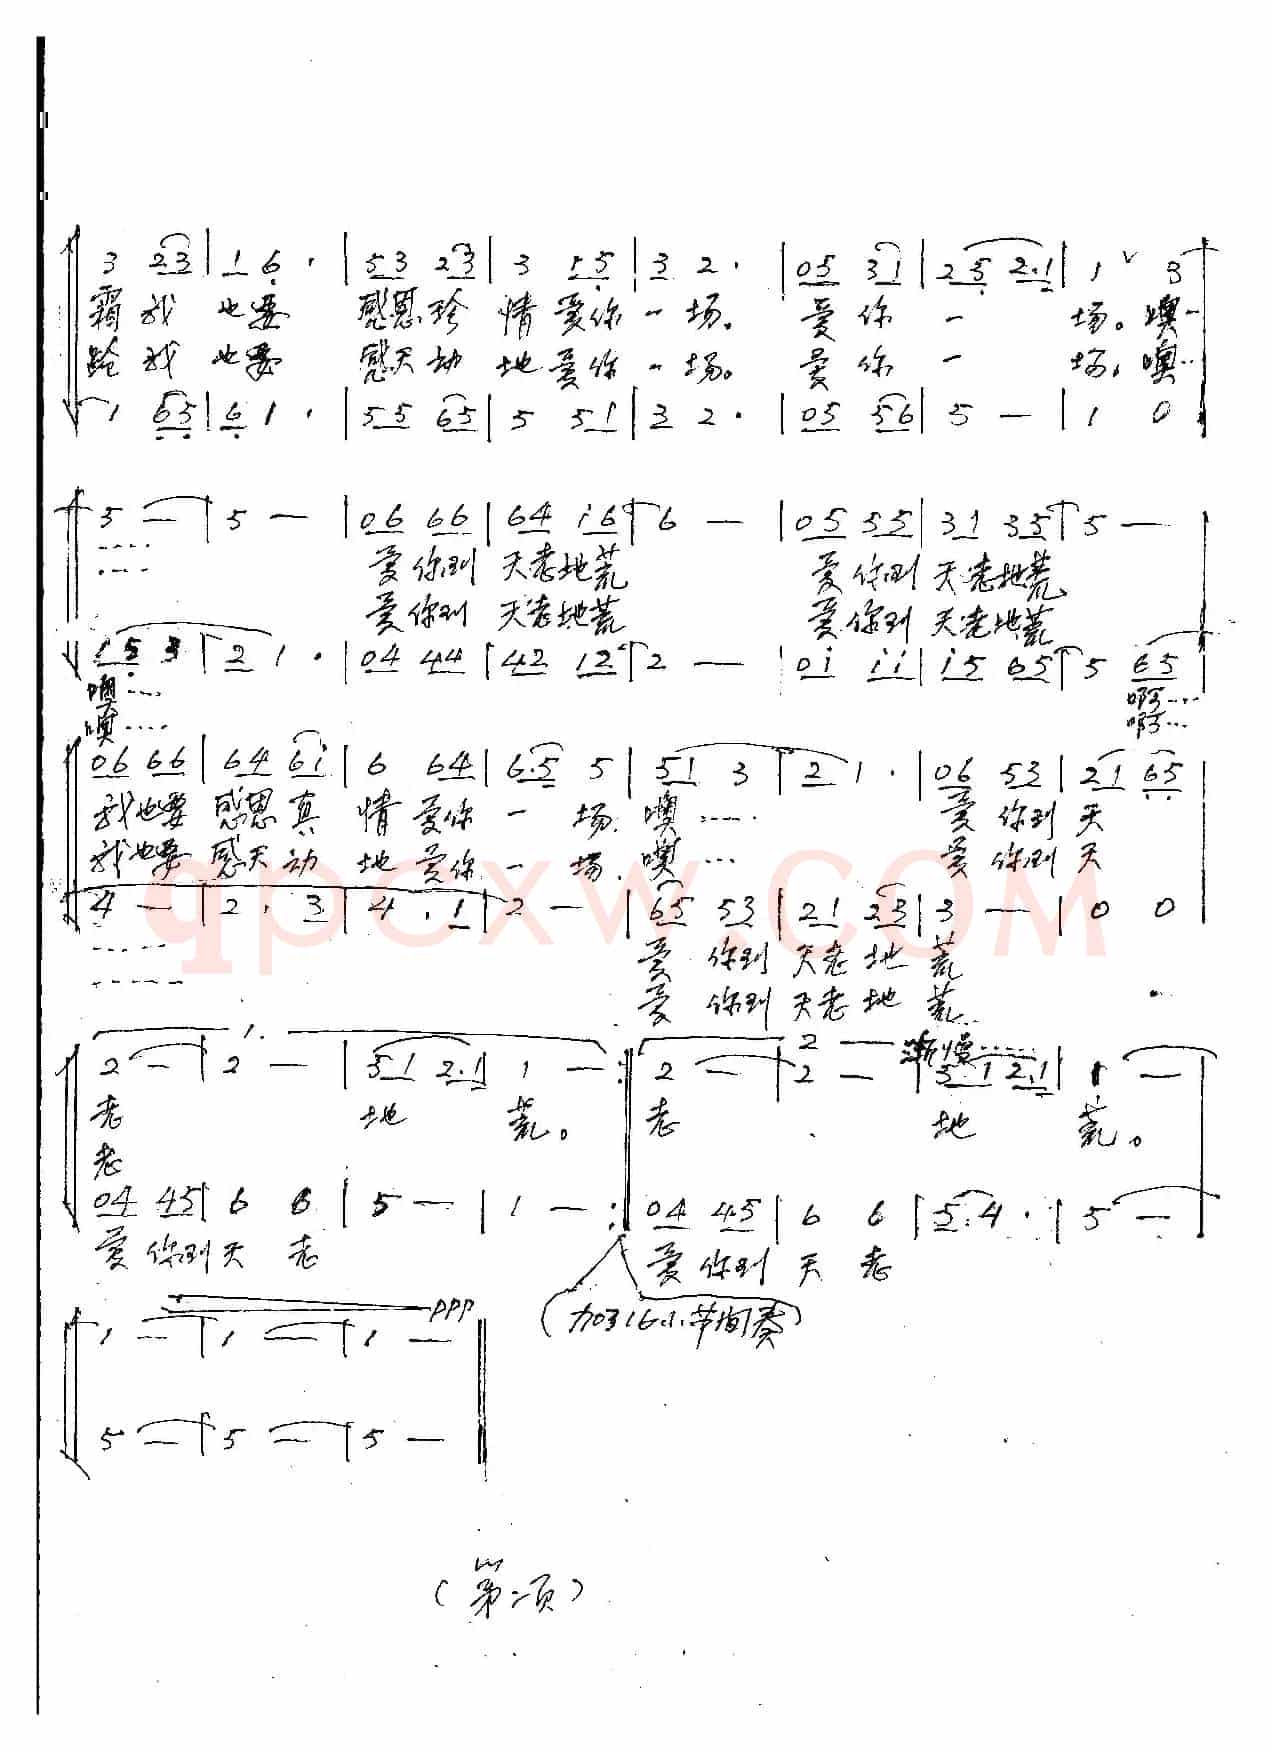 3 23 | 1 6 · | 53 23 | 3 15 | 3 2 · | 05 31 | 25 2·1 | 1 ∨ 3
霜我 也要 感恩珍 情 爱你 一 场。 爱 你 一 场。噢…
跄我 也要 感天动 地爱你 一场。 爱 你 一 场,噢…
1 65 | 6 1 · | 55 65 | 5 51 | 3 2 · | 05 56 | 5 — | 1 0
5 — | 5 — | 06 66 | 64 i6 | 6 — | 05 55 | 31 35 | 5 —
爱你到 天老地荒 爱你到 天老地荒
爱你到 天老地荒 爱你到 天老地荒
15 3 | 2 1 · | 04 44 | 42 12 | 2 — | 0i ii | i5 65 | 5 65
噢…… 啊……
噢…… 啊…
06 66 | 64 6i | 6 64 | 6·5 5 | 51 3 | 2 1 · | 06 53 | 21 65
我也要 感恩真 情 爱你 一 场. 噢…… 爱 你到 天
我也要 感天动 地 爱你 一 场. 噢… 爱 你到 天
4 — | 2 · 3 | 4 · 1 | 2 — | 65 53 | 21 23 | 3 — | 0 0
爱 你到 天老 地 荒
爱 你到 天老 地 荒
1. 2 — 渐慢……
2 — | 2 — | 51 2·1 | 1 — :‖ 2 — | 2 — | 51 2·1 | 1 —
老 地 荒。 老 地 荒。
老
04 45 | 6 6 | 5 — | 1 — :‖ 04 45 | 6 6 | 5·4 · | 5 —
爱 你到 天 老 爱 你到 天 老
(加316小节间奏)
ppp
1 — | 1 — | 1 — ‖
5 — | 5 — | 5 — ‖
(第二页)
qpcxw.com